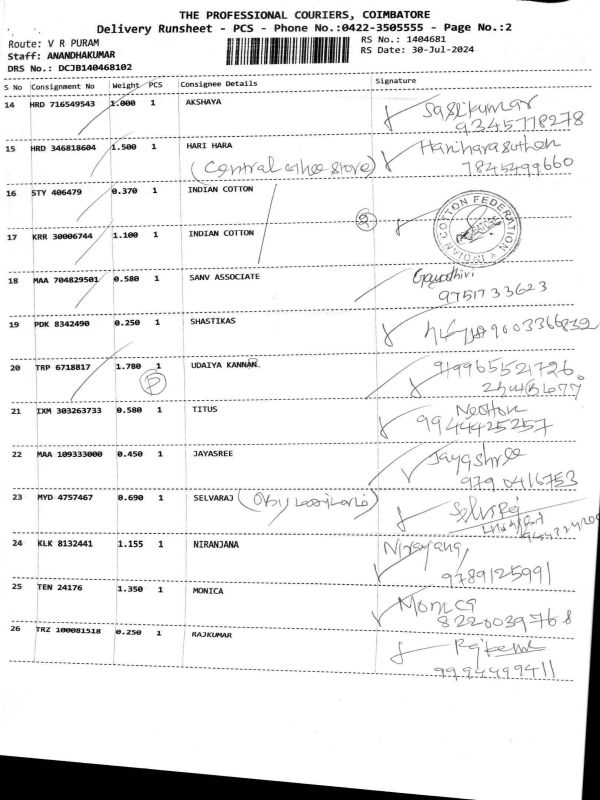 THE PROFESSIONAL COURIERS, COIMBATORE
Delivery Runsheet - PCS - Phone No.:0422-3505555 - Page No.:2
Route: V R PURAM
RS No.: 1404681
Staff: ANANDHAKUMAR
RS Date: 30-Jul-2024
DRS No.: DCJB140468102
S No Consignment No Weight PCS Consignee Details Signature
14 HRD 716549543 1.000 1 AKSHAYA Sasikumar
9345778278
15 HRD 346818604 1.500 1 HARI HARA Hariharasuthan
(Central store) 7845499660
16 STY 406479 0.370 1 INDIAN COTTON
INDIAN COTTON FEDERATION
17 KRR 30006744 1.100 1 INDIAN COTTON
18 MAA 704829501 0.580 1 SANV ASSOCIATE Gayathiri
9751733623
19 PDK 8342490 0.250 1 SHASTIKAS 9003366832
20 TRP 6718817 1.780 1 UDAIYA KANNAN 9199655 21726
P
21 IXM 303263733 0.580 1 TITUS
9944425257
22 MAA 109333000 0.450 1 JAYASREE Jayashree
9790416753
23 MYD 4757467 0.690 1 SELVARAJ Selvaraj
24 KLK 8132441 1.155 1 NIRANJANA Niranjana
9789125991
25 TEN 24176 1.350 1 MONICA Monica
8220039768
26 TRZ 100081518 0.250 1 RAJKUMAR
9994499411